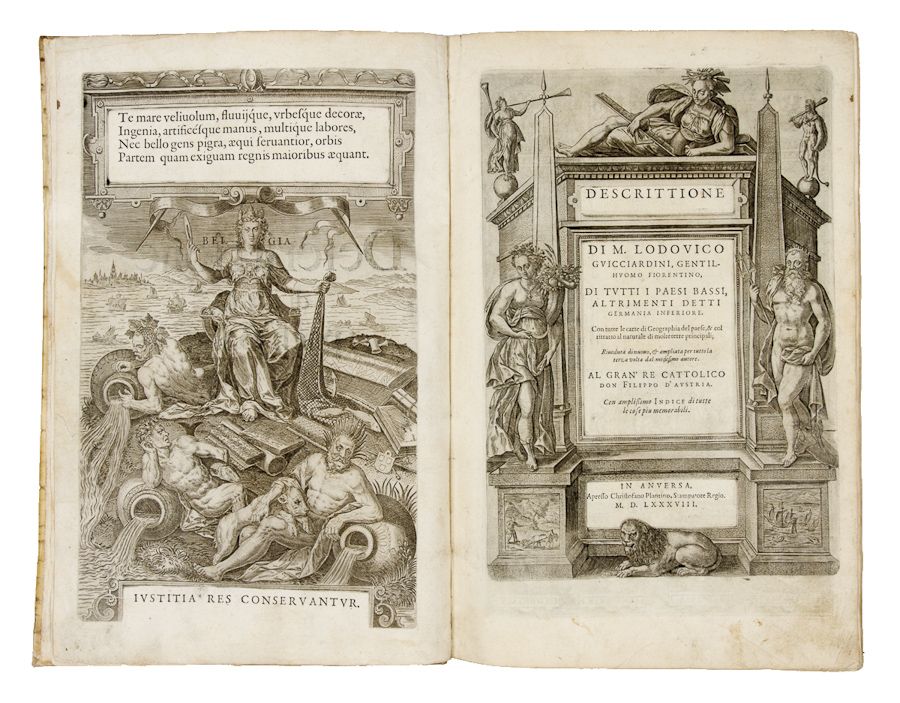 Te mare veliuolum, fluuijq́ue, vrbesq́ue decoræ,
Ingenia, artificésque manus, multique labores,
Nec bello gens pigra, æqui seruantior, orbis
Partem quam exiguam regnis maioribus æquant.
BELGIA
IVSTITIA RES CONSERVANTVR.
DESCRITTIONE
DI M. LODOVICO
GVICCIARDINI, GENTIL-
HVOMO FIORENTINO,
DI TVTTI I PAESI BASSI,
ALTRIMENTI DETTI
GERMANIA INFERIORE.
Con tutte le carte di Geographia del paese, & col
ritratto al naturale di molte terre principali;
Riueduta di nuouo, & ampliata per tutto la
terza volta dal medesimo autore.
AL GRAN' RE CATTOLICO
DON FILIPPO D'AVSTRIA.
Con amplissimo INDICE di tutte
le cose piu memorabili.
IN ANVERSA,
Apresso Christofano Plantino, Stampatore Regio.
M. D. LXXXVIII.